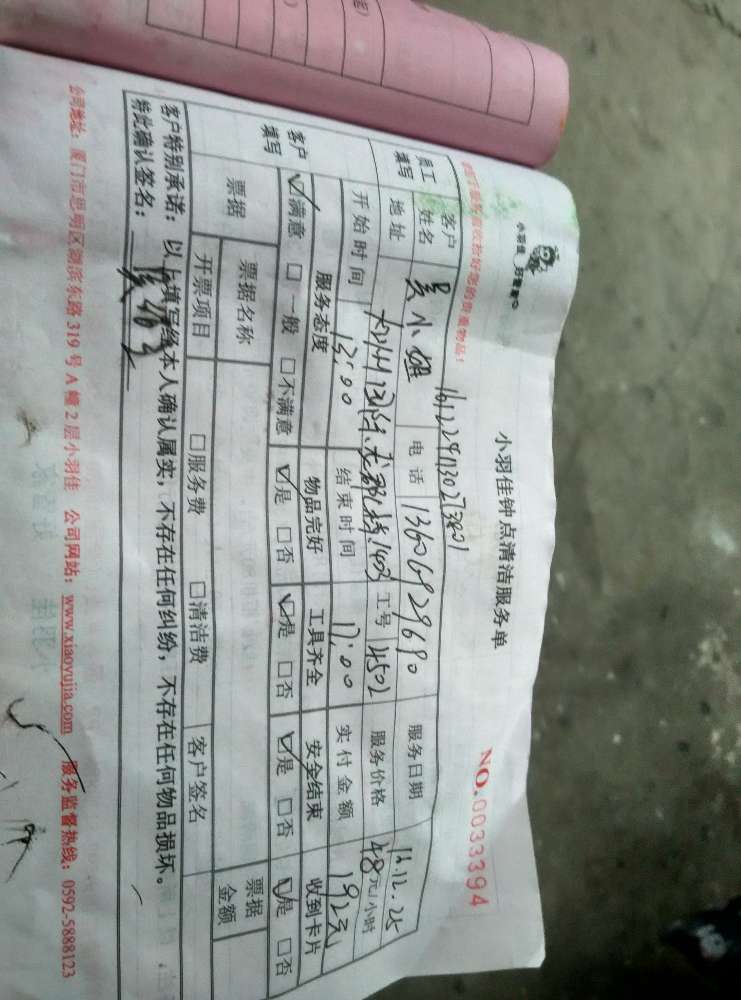 小羽佳 好管家
小羽佳钟点清洁服务单
NO.0033394
收拾好您的贵重物品!
1612291130273801
员工填写 客户姓名 吴小姐 电话 13606929690 服务日期 16.12.25
地址 1403 工号 4502 服务价格 48元/小时
开始时间 13:00 结束时间 17:00 实付金额 192元
客户填写 服务态度 物品完好 工具齐全 安全结束 收到卡片
☑满意 □一般 □不满意 ☑是 □否 ☑是 □否 ☑是 □否 ☑是 □否
票据 票据名称 票据金额
开票项目 □服务费 □清洁费 客户签名
客户特别承诺:以上填写经本人确认属实,不存在任何纠纷,不存在任何物品损坏。
特此确认签名:
公司地址:厦门市思明区湖滨东路319号A幢2层小羽佳 公司网站:www.xiaoyujia.com 服务监督热线:0592-5888123